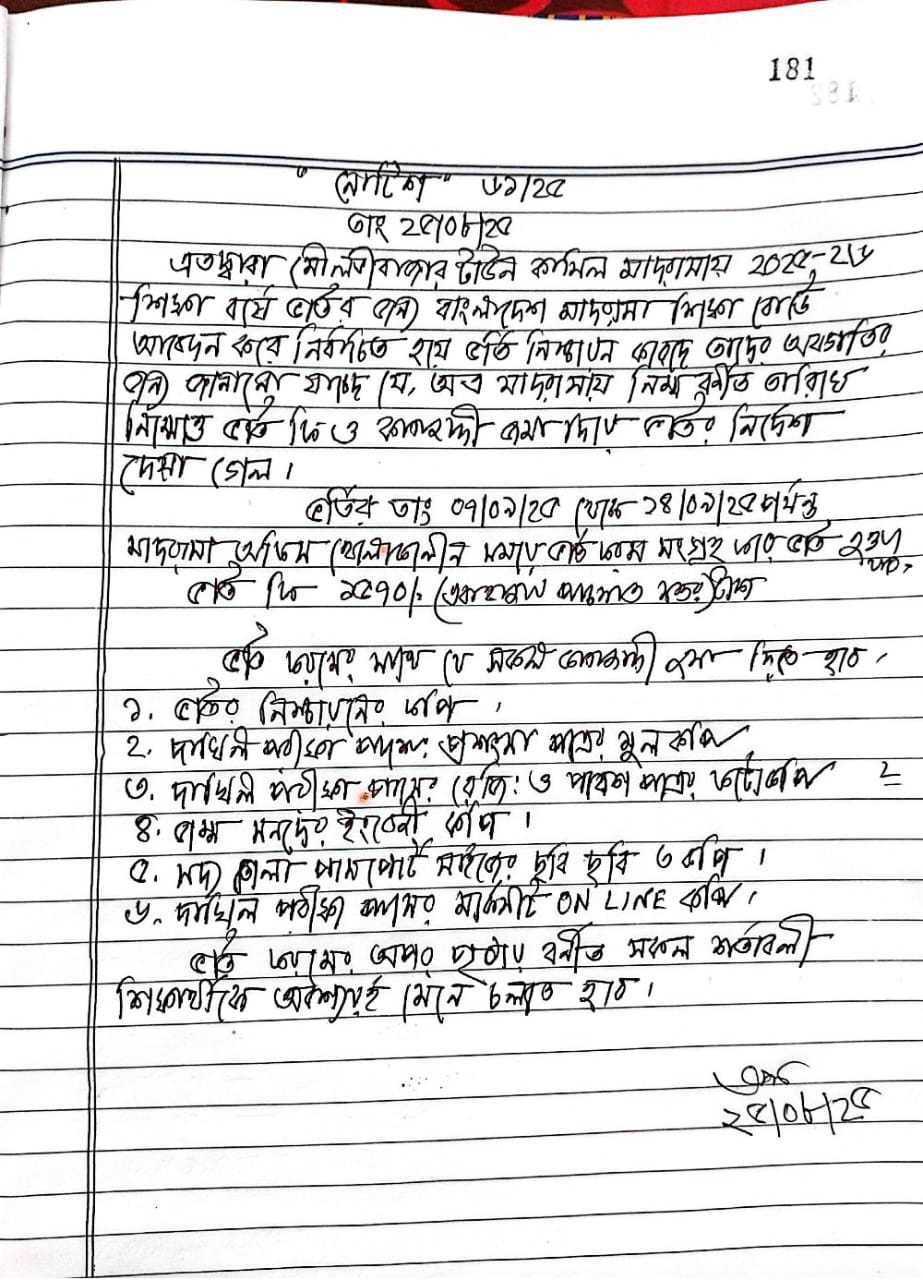 181
" নোটিশ " ৬১/২৫
তাং ২৫/০৮/২৫
এতদ্বারা মৌলভীবাজার টাউন কামিল মাদ্রাসায় ২০২৫-২৬
শিক্ষা বর্ষে ভর্তির জন্য বাংলাদেশ মাদ্রাসা শিক্ষা বোর্ডে
আবেদন করে নির্বাচিত হয়ে ভর্তি নিশ্চায়ন করেছে তাদের অবগতির
জন্য জানানো যাচ্ছে যে, অত্র মাদ্রাসায় নিম্ন বর্নীত তারিখে
নির্ধারিত ভর্তি ফি ও কাগজাদী জমা দিয়ে ভর্তির নির্দেশ
দেয়া গেল।
ভর্তির তাং ০৭/০৯/২৫ থেকে ১৪/০৯/২৫ পর্যন্ত
মাদ্রাসা অফিস খোলাকালীন সময়ে ভর্তি ফরম সংগ্রহ করে ভর্তি হওয়া
যাবে।
ভর্তি ফি ১৫৭০/- (একহাজার পাঁচশত সত্তর) টাকা
ভর্তি ফরমের সাথে যে সকল কাগজাদী জমা দিতে হবে।
১. ভর্তির নিশ্চায়নের কপি।
২. দাখিল পরীক্ষা পাশের প্রশংসা পত্রের মূল কপি
৩. দাখিল পরীক্ষা পাসের রেজি: ও প্রবেশ পত্রের ফটোকপি
৪. জন্ম সনদের ইংরেজী কপি।
৫. সদ্য তোলা পাসপোর্ট সাইজের ছবি ছবি ৩ কপি।
৬. দাখিল পরীক্ষা পাসের মার্কসীট ON LINE কপি।
ভর্তি ফরমের অপর পৃষ্ঠায় বর্নীত সকল শর্তাবলী
শিক্ষার্থীকে অবশ্যই মেনে চলতে হবে।
২৫/০৮/২৫